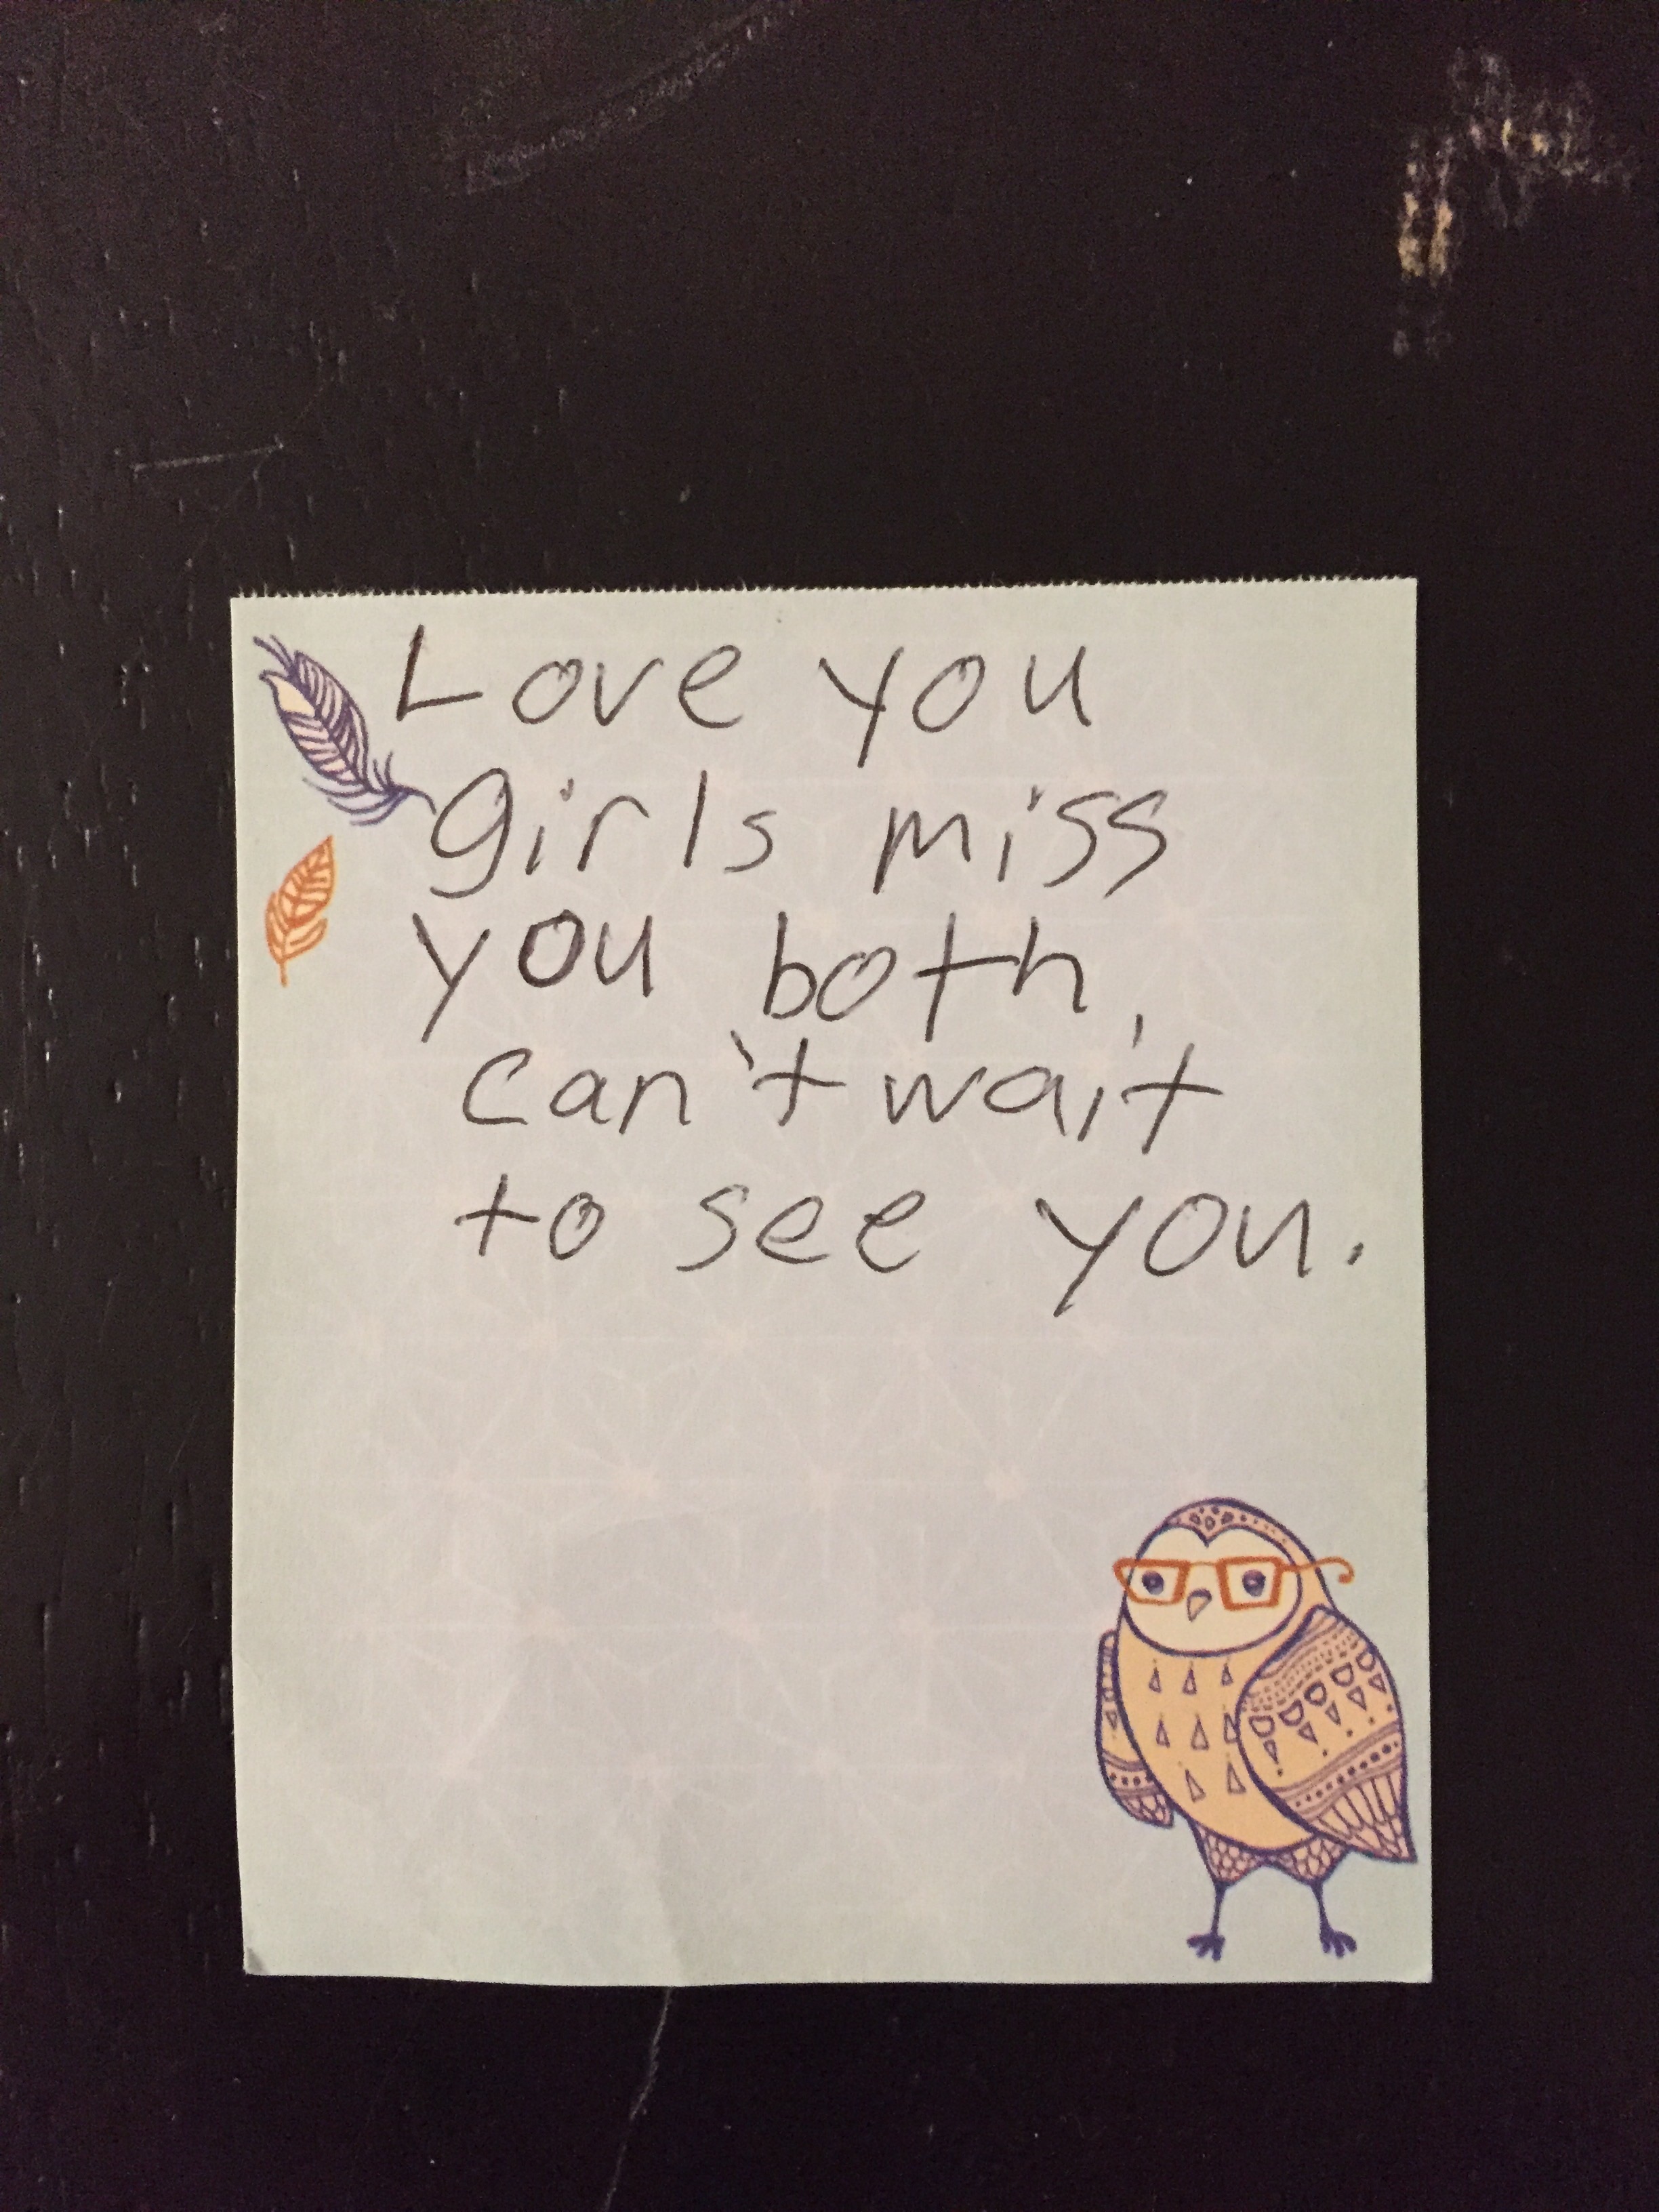 Love you
girls miss
you both,
can't wait
to see you.